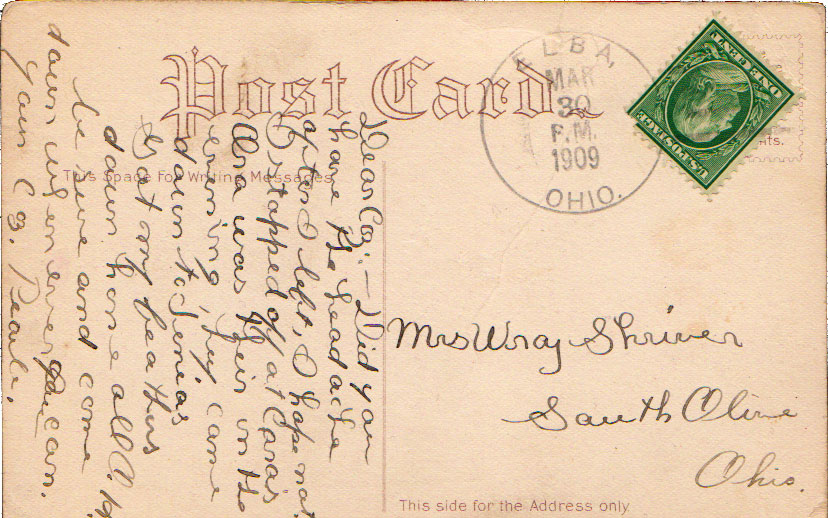 Post Card
ELBA,
MAR
30
P.M.
1909
OHIO.
U.S.POSTAGE
ONE CENT
This Space For Writing Messages
Dear Co: — Did you
have the headache
after I left, I hope not
I stopped off at Caras
Ora was their in the
evening, they came
down to
Got my feathers
down home all O.K.
be sure and come
down whenever you can.
your Co. Pearl.
Mrs Wray Shriver
South Olive
Ohio.
This side for the Address only